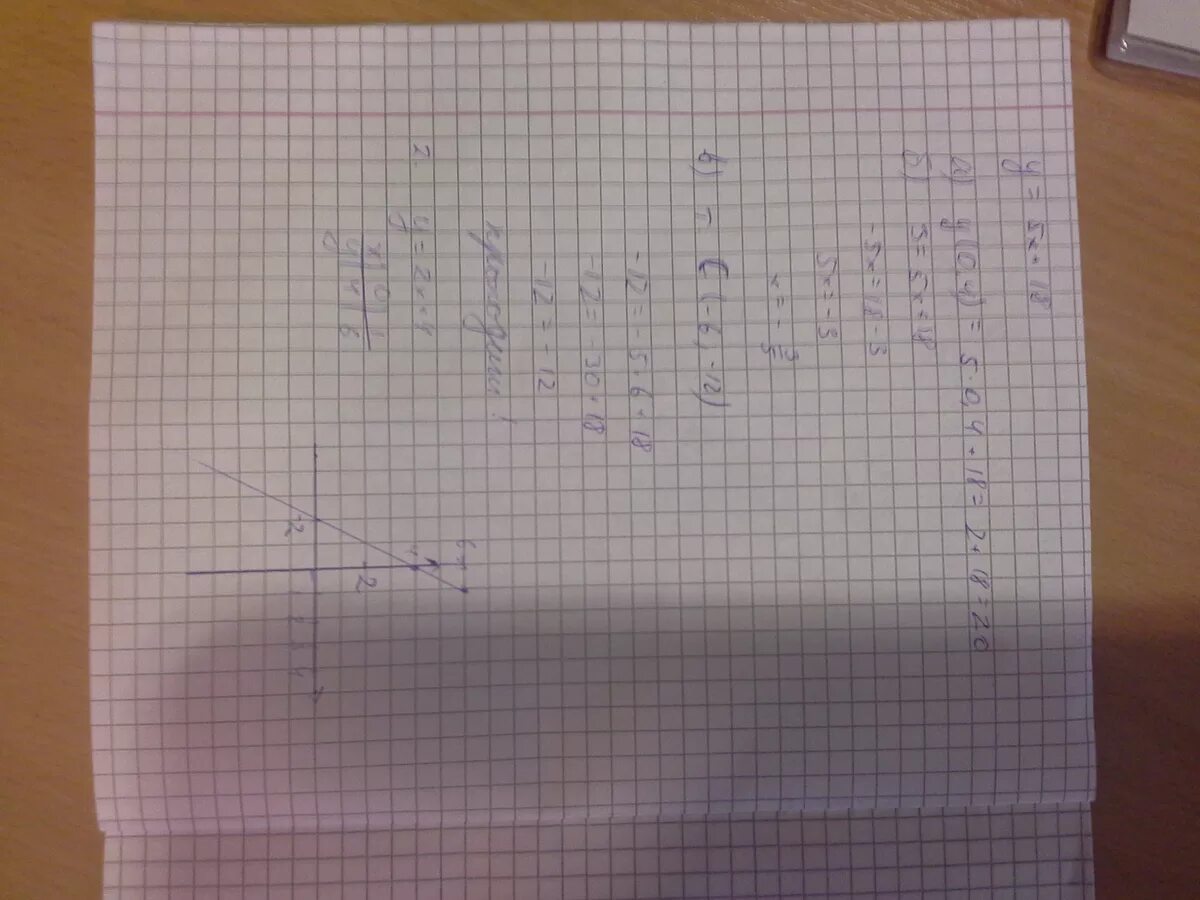 y = 5x + 18
а) y(0,4) = 5·0,4 + 18 = 2 + 18 = 20
б) 3 = 5x + 18
-5x = 18 - 3
5x = -3
x = -3/5
в) т. C (-6; -12)
-12 = -5·6 + 18
-12 = -30 + 18
-12 = -12
проходит!
2. y = 2x + 4
x | 0 | 1
y | 4 | 6
6
4
2
-2
4